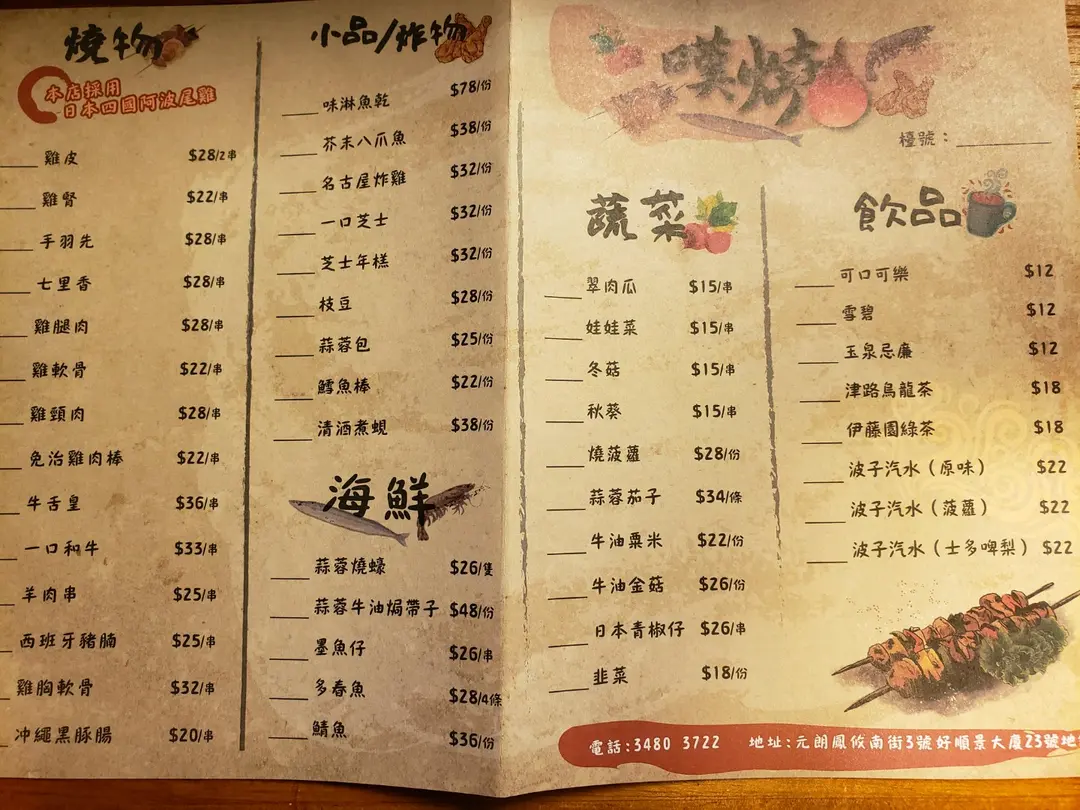 燒物
本店採用
日本四國阿波尾雞
雞皮 $28/2串
雞腎 $22/串
手羽先 $28/串
七里香 $28/串
雞腿肉 $28/串
雞軟骨 $22/串
雞頸肉 $28/串
免治雞肉棒 $22/串
牛舌皇 $36/串
一口和牛 $33/串
羊肉串 $25/串
西班牙豬腩 $25/串
雞胸軟骨 $32/串
沖繩黑豚腸 $20/串
小品/炸物
味淋魚乾 $78/份
芥末八爪魚 $38/份
名古屋炸雞 $32/份
一口芝士 $32/份
芝士年糕 $32/份
枝豆 $28/份
蒜蓉包 $25/份
鱈魚棒 $22/份
清酒煮蜆 $38/份
海鮮
蒜蓉燒蠔 $26/隻
蒜蓉牛油焗帶子 $48/份
墨魚仔 $26/串
多春魚 $28/4條
鯖魚 $36/份
嘆燒
檯號：
蔬菜
翠肉瓜 $15/串
娃娃菜 $15/串
冬菇 $15/串
秋葵 $15/串
燒菠蘿 $28/份
蒜蓉茄子 $34/條
牛油粟米 $22/份
牛油金菇 $26/份
日本青椒仔 $26/串
韭菜 $18/份
飲品
可口可樂 $12
雪碧 $12
玉泉忌廉 $12
津路烏龍茶 $18
伊藤園綠茶 $18
波子汽水（原味） $22
波子汽水（菠蘿） $22
波子汽水（士多啤梨） $22
電話:3480 3722 地址:元朗鳳攸南街3號好順景大廈23號地